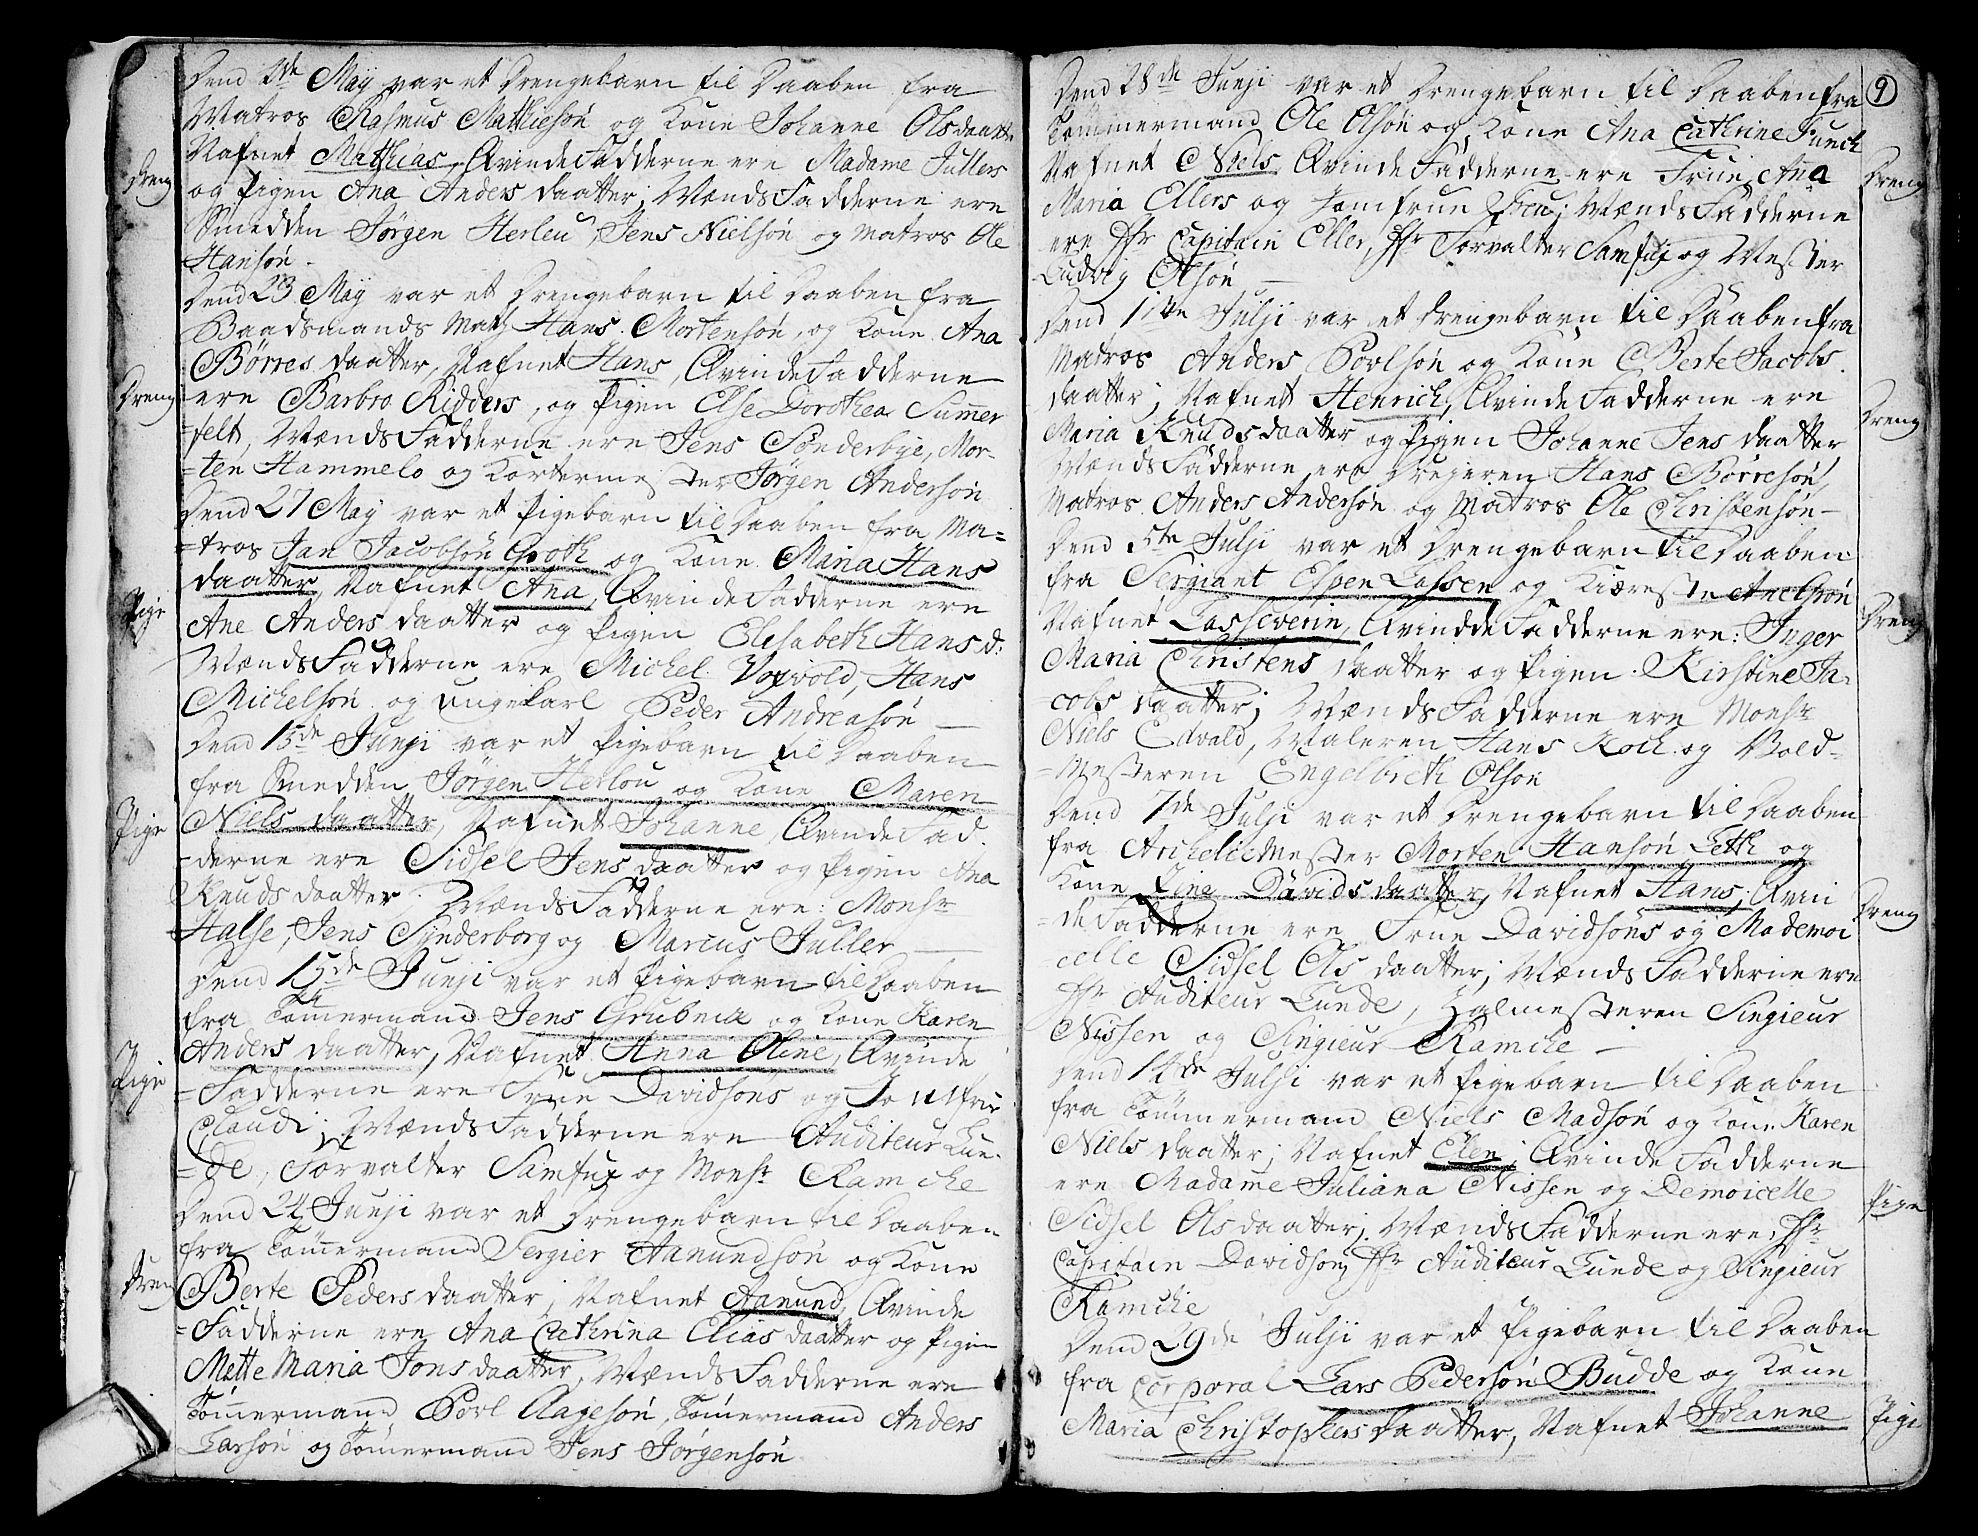 Dend 2de Maÿ var et Drengebarn til Daaben fra
Matros Rasmus Mathiesøn og Kone Johanne Olsdaatter
Nafnet Mathias, QvindeFadderne ere Madame Jullers
Dreng
og Pigen Ana Anders daatter; MændsFadderne ere
Smedden Jørgen Herleu, Jens Nielsøn og Matros Ole
Hansøn.
Dend 23 Maÿ var et Drengebarn til Daaben fra
Baadsmands Math Hans Mortensøn, og Kone Ana
Børres daatter, Nafnet Hans, QvindeFadderne
Dreng
ere Barbro Ridders, og Pigen Else Dorothea Sumer
felt, MændsFadderne ere Jens Sønderbye, Mor-
-ten Hammelo og Kortermester Jørgen Andersøn
Dend 27 Maÿ var et Pigebarn til Daaben fra Ma=
-tros Jan Jacobsøn Groth og Kone Maria Hans
daatter, Nafnet Ana, QvindeFadderne ere
Pige
Ane Anders daatter og Pigen Elisabeth Hans d:
MændsFadderne ere Michel Voxvold, Hans
Michelsøn og ungekarl Peder Andreasøn
Dend 15de Junji var et Pigebarn til Daaben
fra Smedden Jørgen Herlou og Kone Maren
Pige
Niels daatter, Nafnet Johanne, QvindeFad-
-derne ere Sidsel Jens daatter og Pigen Ana
Knuds daatter; MændsFadderne ere: Monsr
Halse, Jens Synderborg og Marcus Juller
Dend 15de Junji var et Pigebarn til Daaben
fra Tømermand Jens Grubnia og Kone Karen
Anders daatter, Nafnet Anna Oline, Qvinde
Pige
-Fadderne ere Frue Davidsons og Jomfrue
Claudi; MændsFadderne ere Auditeur Lun-
-de, Forvalter Samfux og Monsr Ramche
Dend 24 Junji var et Drengebarn til Daaben
fra Tømermand Sergier Aamundsøn og Kone
Dreng
Berte Peders daatter; Nafnet Aamund, Qvinde
-Fadderne ere Ana Cathrina Elias daatter og Pigen
Mette Maria Jons daatter, MændsFadderne ere
Tømermand Povl Aagesøn, Tømermand Anders
Larsøn og Tømermand Jens Jørgensøn
9
Dend 28de Junji var et Drengebarn til Daaben fra
Tømmermand Ole Olsøn og Kone Ana Cathrine Funch
Nafnet Niels, QvindeFadderne ere Frue Ana
Dreng
Maria Ellers og Jomfrue; MændsFadderne
ere Hr Capitain Eller, Hr Forvalter Samfux og Mester
Ludvig Olsøn
Dend 1ste Julji var et Drengebarn til Daaben fra
Matros Anders Povlsøn og Kone Berte Jacobs
daatter; Nafnet Henrich, QvindeFadderne ere
Dreng
Maria Knudsdaatter og Pigen Johanne Jens daatter
MændsFadderne ere Drejeren Hans Børresøn,
Matros Anders Andersøn og Matros Ole Christensøn
Dend 5te Julji var et Drengebarn til Daaben
fra Sergiant Espen Lassen og Kiæreste Ane Grøn
Dreng
Nafnet Lasseverin, QvinddeFadderne ere: Inger
Maria Christens daatter og Pigen Kirstine Ja-
cobs daatter; MændsFadderne ere Monsr
Niels Edvald, Maleren Hans Koch og Vold-
-Mesteren Engelbreth Olson
Dend 7de Julji var et Drengebarn til Daaben
fra Archeliemester Morten Hansøn Leth og
Kone Zine Davidsdaatter, Nafnet Hans; Qvin
Dreng
-deFadderne ere Frue Davidsøns og Mademoi
celle Sidsel Ols daatter; MændsFadderne ere
Hr Auditeur Lunde, Holmesteren Singieur
Nissen og Singieur Ramche
Dend 12de Julji var et Pigebarn til Daaben
fra Tømmermand Niels Madsøn og Kone Karen
Niels daatter; Nafnet Elen; QvindeFadderne
Pige
ere Madame Juliana Nissen og Demoicelle
Sidsel Olsdaatter; MændsFadderne ere: Hr
Capitain Davidson, Hr Auditeur Lunde og Singieur
Ramche
Dend 29de Julji var et Pigebarn til Daaben
fra Corporal Lars Pedersøn Budde og Kone
Pige
Maria Christophers daatter, Nafnet Johanne